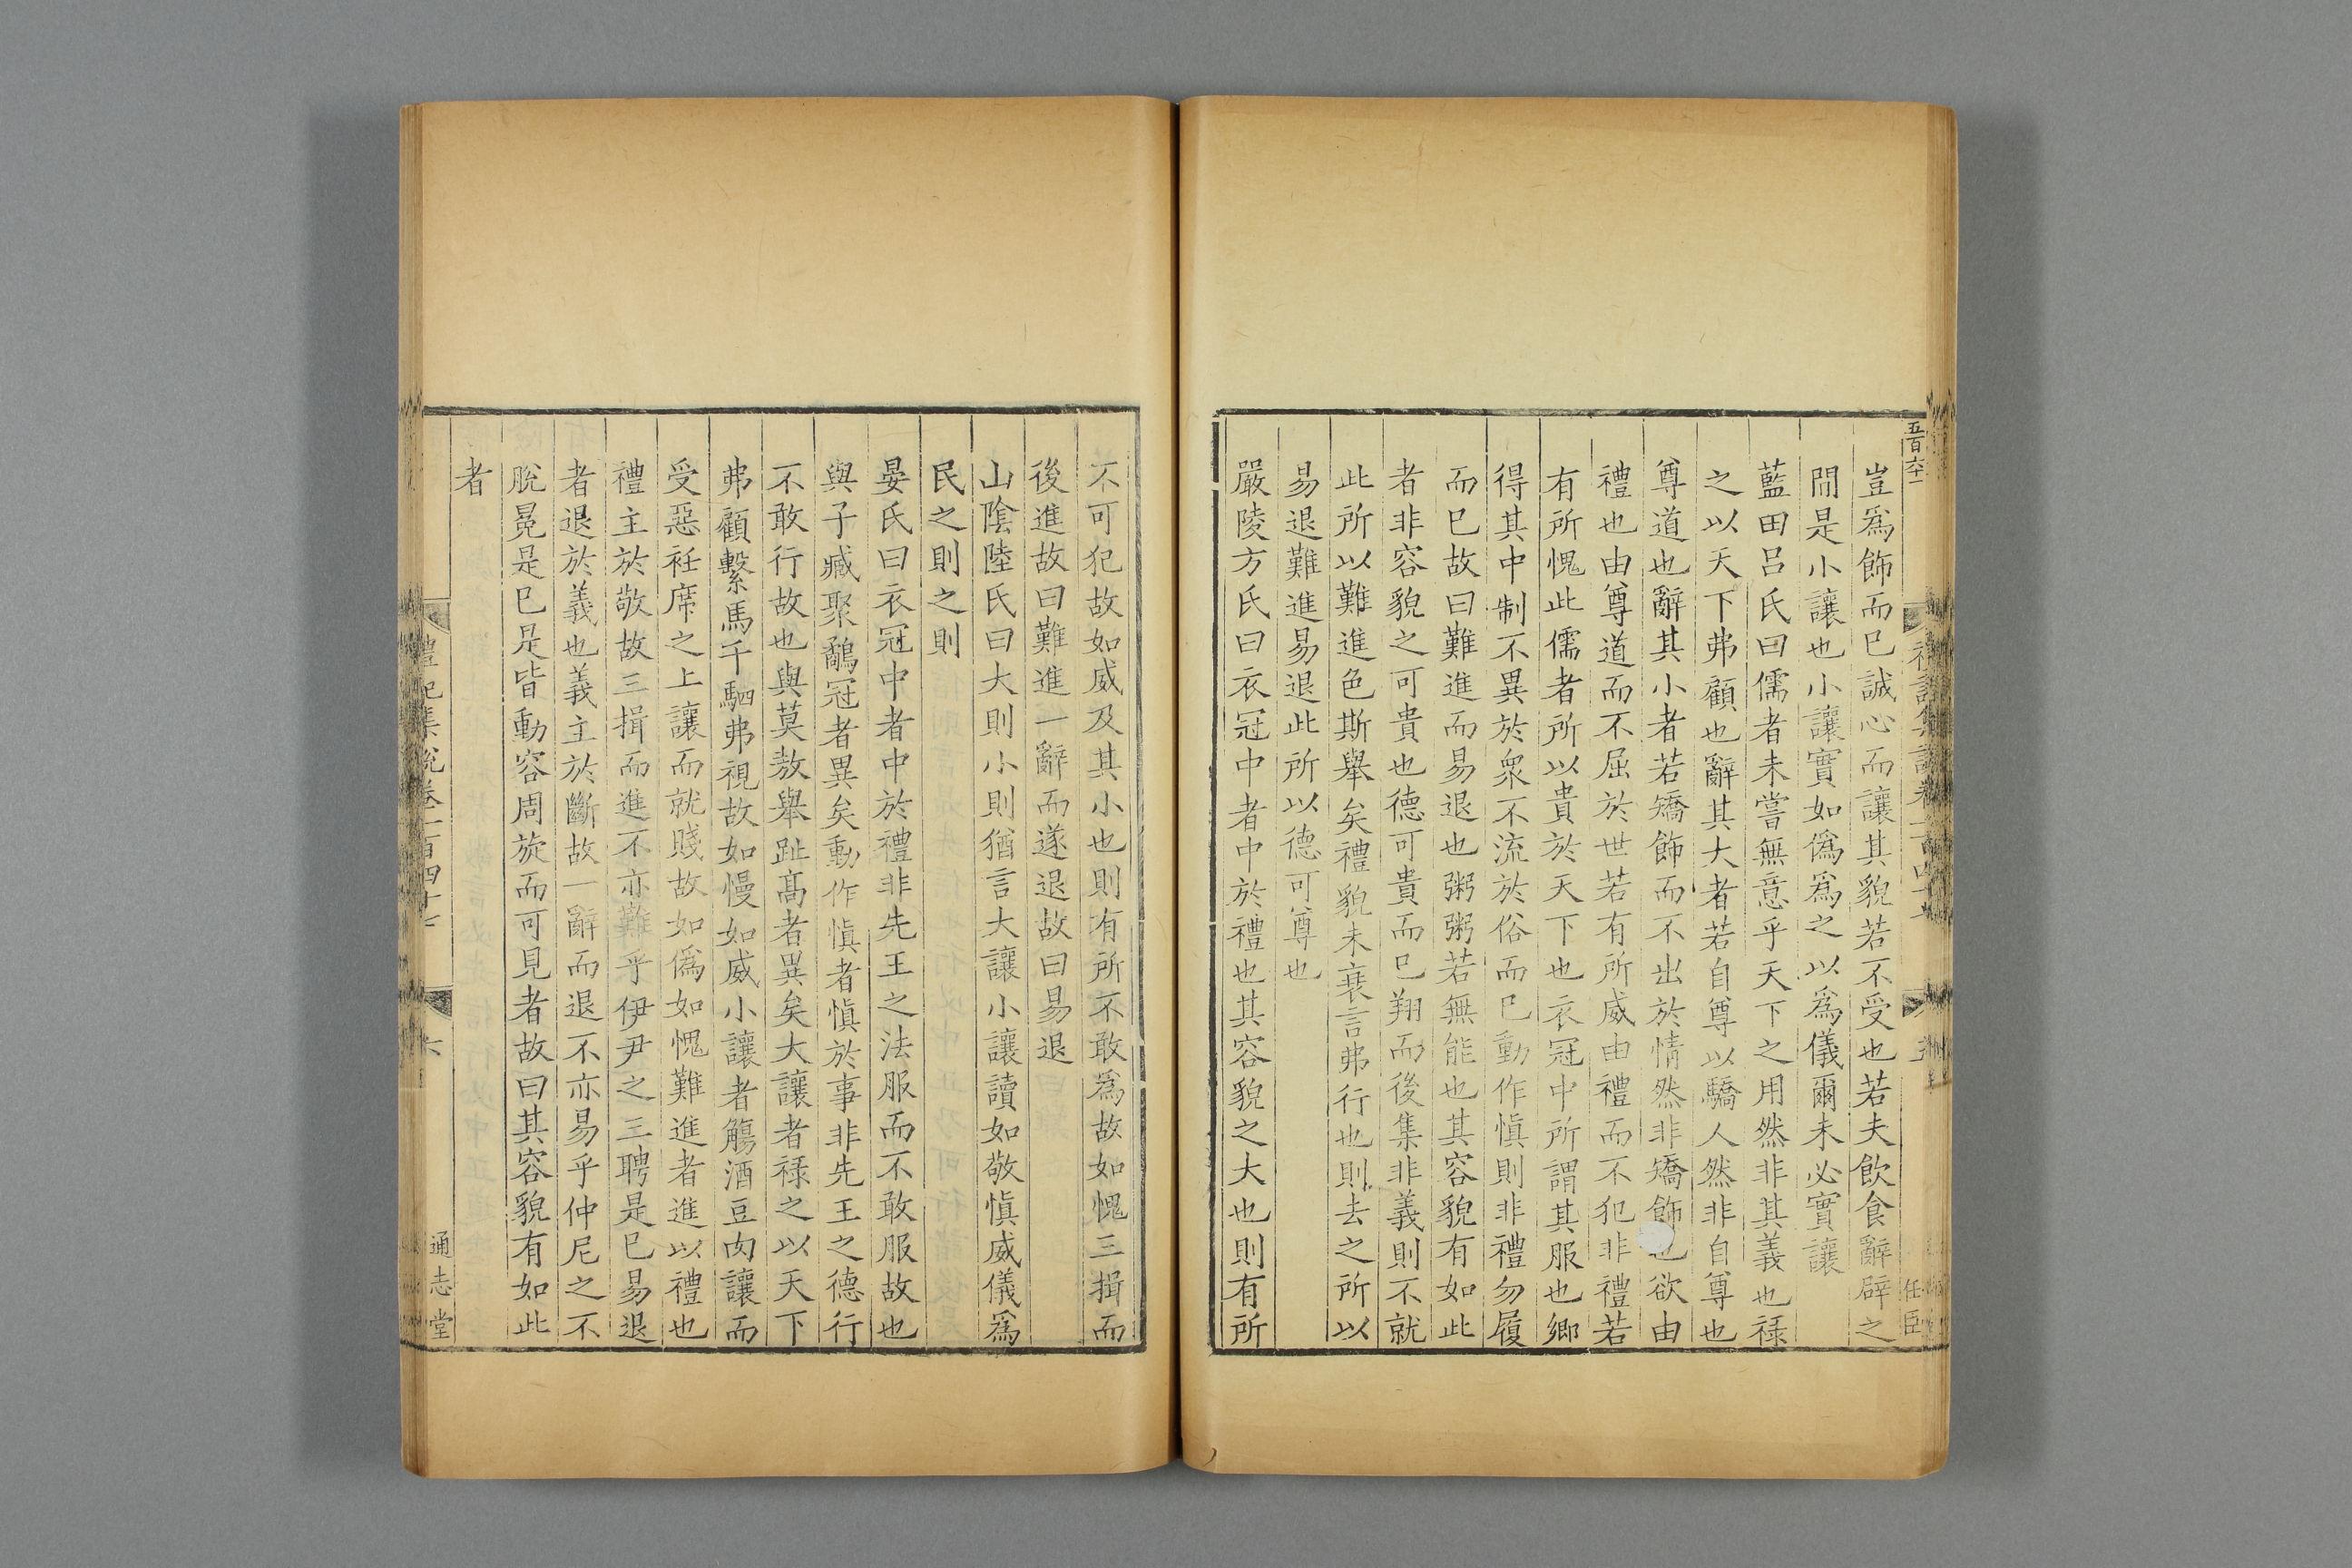 五百六十一
豈爲飾而已誠心而讓其貌若不受也若夫飲食辭辟之
間是小讓也小讓實如僞爲之以爲儀爾未必實讓
藍田呂氏曰儒者未嘗無意乎天下之用然非其義也祿
之以天下弗顧也辭其大者若自尊以驕人然非自尊也
尊道也辭其小者若矯飾而不出於情然非矯飾也欲由
禮也由尊道而不屈於世若有所威由禮而不犯非禮若
有所愧此儒者所以貴於天下也衣冠中所謂其服也鄉
得其中制不異於衆不流於俗而已動作愼則非禮勿履
而已故曰難進而易退也粥粥若無能也其容貌有如此
者非容貌之可貴也德可貴而已翔而後集非義則不就
此所以難進色斯舉矣禮貌未衰言弗行也則去之所以
易退難進易退此所以德可尊也
嚴陵方氏曰衣冠中者中於禮也其容貌之大也則有所
任臣
不可犯故如威及其小也則有所不敢爲故如愧三揖而
後進故曰難進一辭而遂退故曰易退
山陰陸氏曰大則小則猶言大讓小讓讀如敬愼威儀爲
民之則之則
晏氏曰衣冠中者中於禮非先王之法服而不敢服故也
與子臧聚鷸冠者異矣動作愼者愼於事非先王之德行
不敢行故也與莫敖舉趾高者異矣大讓者祿之以天下
弗顧繫馬千駟弗視故如慢如威小讓者觴酒豆肉讓而
受惡衽席之上讓而就賤故如僞如愧難進者進以禮也
禮主於敬故三揖而進不亦難乎伊尹之三聘是已易退
者退於義也義主於斷故一辭而退不亦易乎仲尼之不
脫冕是已是皆動容周旋而可見者故曰其容貌有如此
者
禮記集說卷一百四十七
六
通志堂